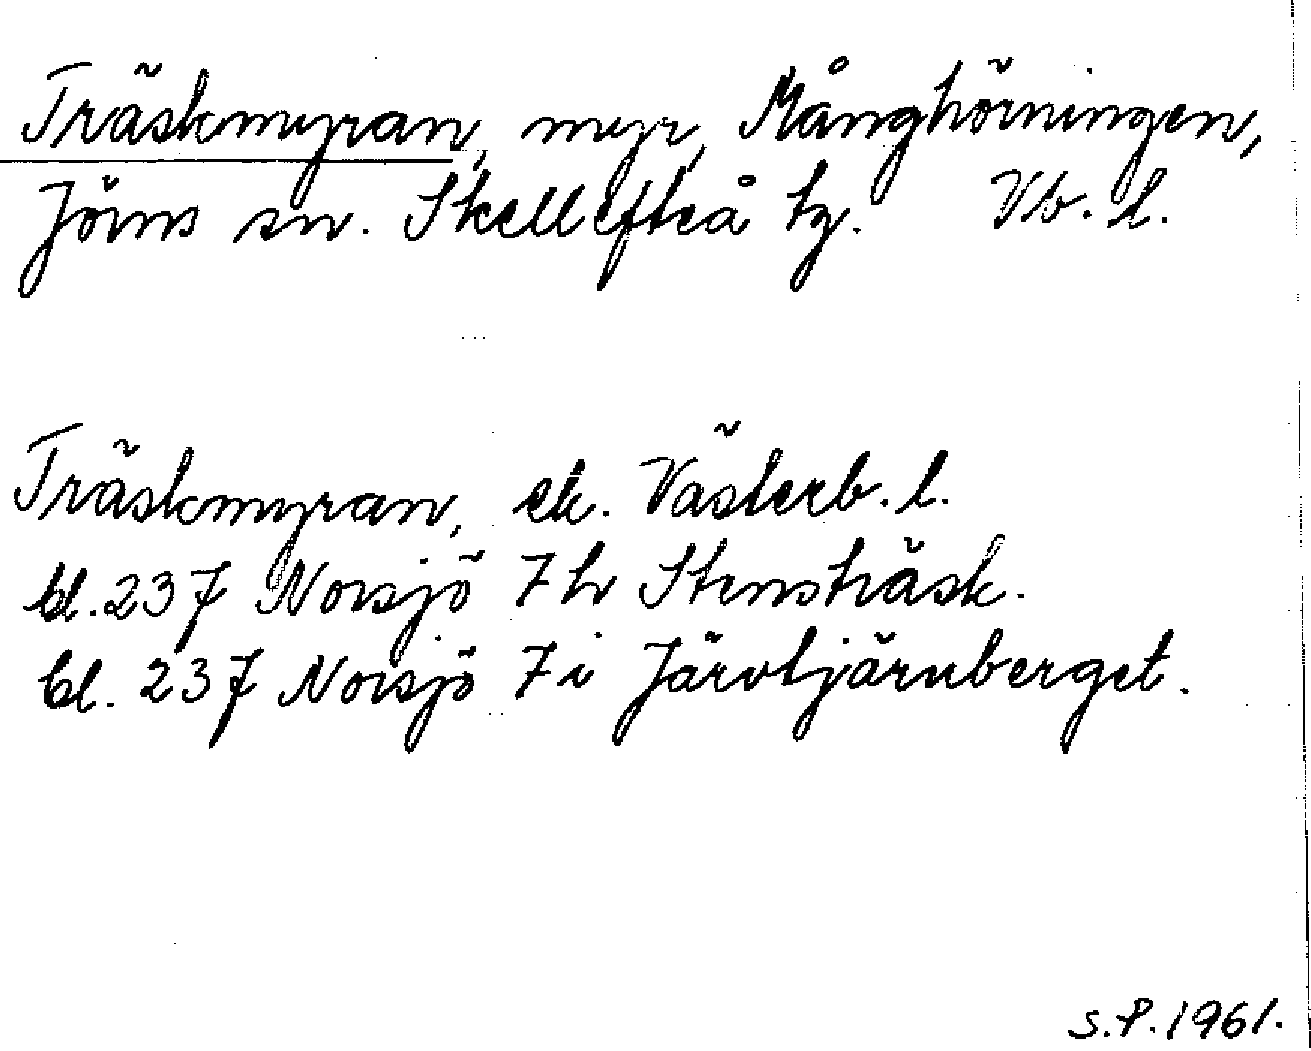 Träskmyran, myr, Månghörningen,
Jörns sn. Skellefteå tg. Vb. l.
Träskmyran, ek. Västerb. l.
bl. 237 Norsjö 7 h Stensträsk.
bl. 237 Norsjö 7 i Järvtjärnberget.
S.P. 1961.